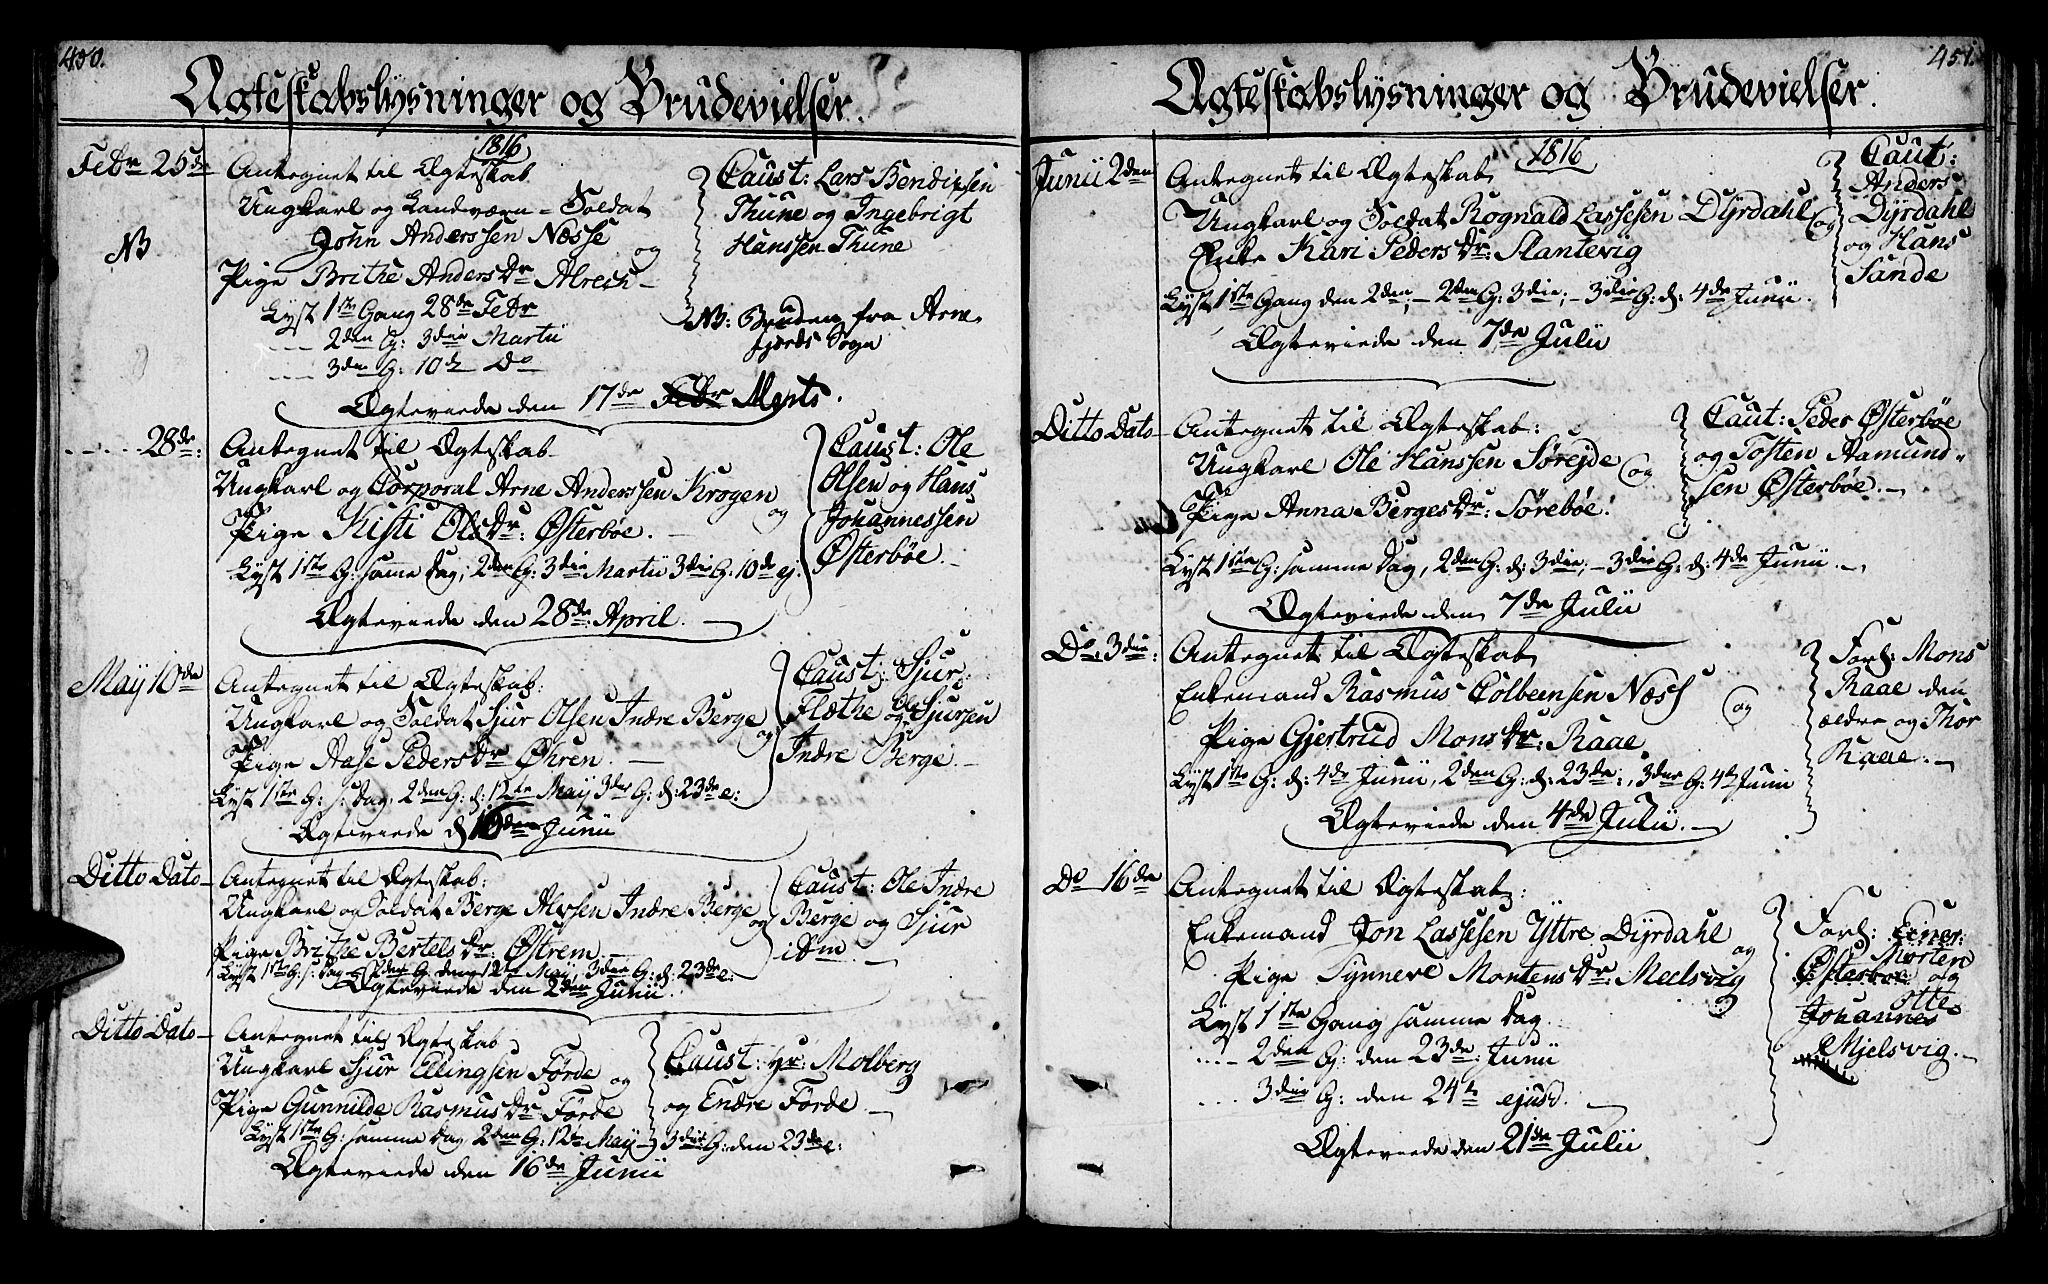 450.
Ægteskabslysninger og Brudevielser.
1816
Febr 25de
Antegnet til Ægteskab
Ungkarl og Landværn-Soldat
John Anderssen Næsse
og
NB
Pige Brithe Anders Dr Alrech
Lyst 1ste Gang 28de Febr
2den G: 3die Martii
3die G: 10de Do
Caust: Lars Bendixsen
Thune og Ingebrigt
Hanssen Thune
NB: Bruden fra Arne-
fjords Sogn
Ægteviede den 17de Febr Marts.
28de:
Antegnet til Ægteskab
Ungkarl og Corporal Arne Anderssen Krogen
og
Pige Kisti Ols Dr: Østerbøe.
Lyst 1ste G: samme Dag; 2den G: 3die Martii 3die G: 10de ej:
Caust: Ole
Olsen og Hans
Johannessen
Østerbøe.
Ægteviede den 28de April.
May 10de
Antegnet til Ægteskab:
Ungkarl og Soldat Sjur Olsen Indre Berge
og
Pige Aase Peders Dr Øhren.
Lyst 1ste G: s: Dag, 2den G: d: 12te May 3die G: d: 23de e:
Caust: Sjur
Flæthe og Ole Sjursen
Indre Berge.
Ægteviede d 16den Junii
Ditto Dato
Antegnet til Ægteskab:
Ungkarl og Soldat Berge Alvsen Indre Berge
og
Pige Brithe Bertels Dr: Østrem
Lyst 1ste G: s: Dag 2den G: den 12te May, 3die G: d: 23de e:
Caust: Ole Indre
Berge og Sjur
ibm
Ægteviede den 2den Junii.
Ditto Dato
Antegnet til Ægteskab
Ungkarl Sjur Ellingsen Förde
og
Pige Gunnilde Rasmus Dr: Förde
Lyst 1ste G: samme Dag 2den G: 12te May 3die G: den 23de e:
Caust: Molberg
og Endre Förde
Ægteviede den 16de Junii
451.
Ægteskabslysninger og Brudevielser.
1816
Junii 2den
Antegnet til Ægteskab
Ungkarl og Soldat Rognald Lassesen Dÿrdahl
og
Enke Kari Peders Dr: Slantevig
Lyst 1ste Gang den 2den; 2den G: 3die; 3die G: d: 4de Junii.
Caut:
Anders
Dÿrdahl
og Hans
Sande
Ægteviede den 7de Julii
Ditto Dato
Antegnet til Ægteskab:
Ungkarl Ole Hanssen Sørejde
og
Pige Anna Berges Dr: Sörebøe.
Lyst 1ste G: samme Dag, 2den G: d: 3die; 3die G: d: 4de Junii.
Caut: Peder Østerbøe
og Tosten Aamund-
sen Østerbøe.
Ægteviede den 7de Julii
Do 3die:
Antegnet til Ægteskab
Enkemand Rasmus Colbeensen Næss
og
Pige Gjertrud Mons Dr: Raae.
Lyst 1ste G: d: 4de Junii, 2den G: d: 23de:, 3die G: 4de Junii
Forl: Mons
Raae den
ældre og Thor
Raae.
Ægteviede den 4de Julii.
Do 16de
Antegnet til Ægteskab:
Enkemand Jon Lassesen Ÿttre Dÿrdahl
og
Pige Synneve Mortens Dr: Meelsvig
Lyst 1ste Gang samme Dag
2den G: den 23de: Junii
3die G: den 24de ejusd.
Forl: Einer
Morten
Østerboe og
Otte
Johannes
Mjelsvig.
Ægteviede den 21de Julii